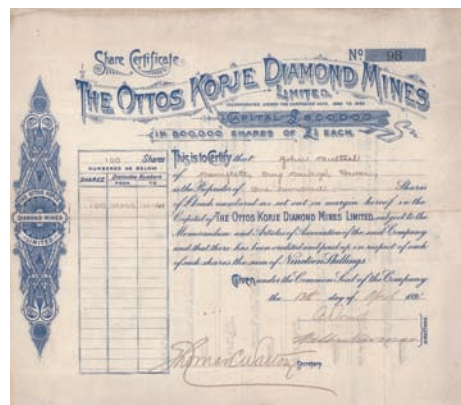 Share Certificate
Nº 98
THE OTTOS KOPJE DIAMOND MINES
LIMITED.
INCORPORATED UNDER THE COMPANIES ACTS, 1862 TO 1890
CAPITAL £600,000
IN 600,000 SHARES OF £1 EACH.
100 Shares
NUMBERED AS BELOW
SHARES Distinctive Numbers
FROM TO
100
THE OTTOS KOPJE
DIAMOND MINES
LIMITED
This is to Certify that
of
is the Proprietor of One hundred Shares
of £1 each numbered as set out in margin hereof in the
Capital of THE OTTOS KOPJE DIAMOND MINES LIMITED subject to the
Memorandum and Articles of Association of the said Company
and that there has been credited and paid up in respect of each
of such shares the sum of Nineteen Shillings.
Given under the Common Seal of the Company
the day of April
Secretary